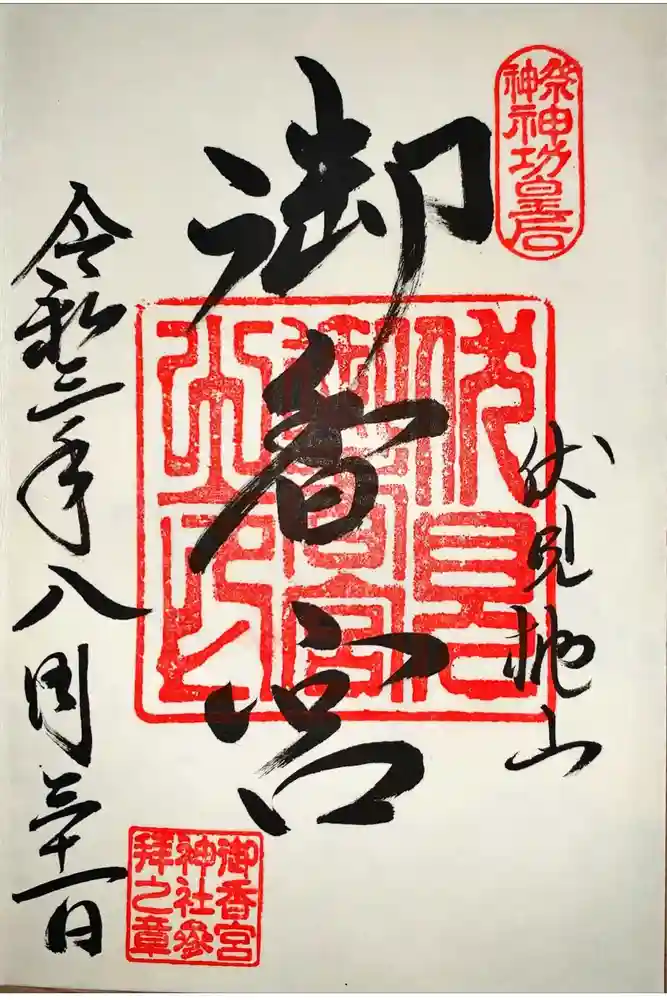 祭神
神功皇后
伏見桃山
御香宮
伏見
御香宮
之印
令和三年八月三十一日
御香宮
神社參
拝之章